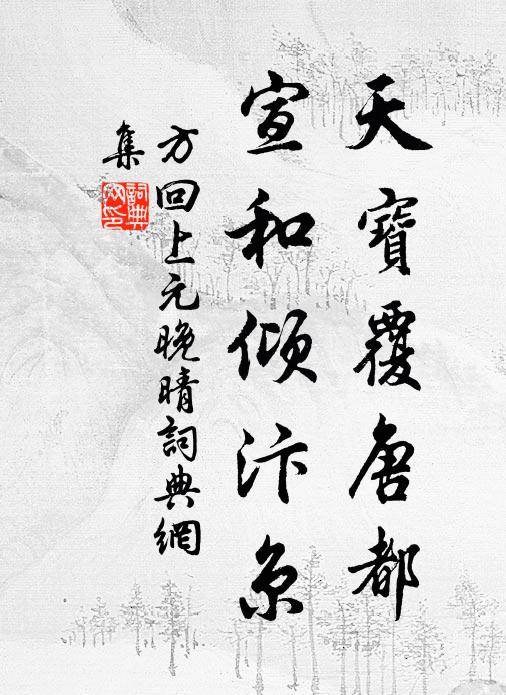 天寶覆唐都
宣和傾汴京
方回上元晚晴詞典網
集
詞典網印